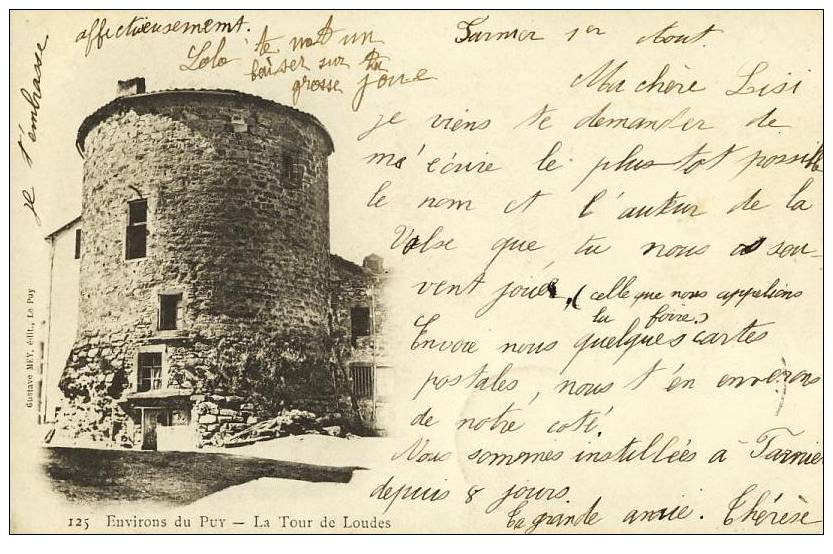 Tarnier 1er Aout.
Ma chère Lisi
je viens te demander de
m'écrire le plus tot possible
le nom et l'auteur de la
Valse que tu nous as sou-
vent jouée, (celle que nous appelions
la foire)
Envoie nous quelques cartes
postales, nous t'en enverons
de notre coté.
Nous sommes installées à Tarnier
depuis 8 jours.
Ta grande amie. Thérèse
je t'embrasse
affectueusement.
Lolo te met un
baiser sur ta
grosse joue
Gustave MEY, édit., Le Puy
125 Environs du PUY — La Tour de Loudes